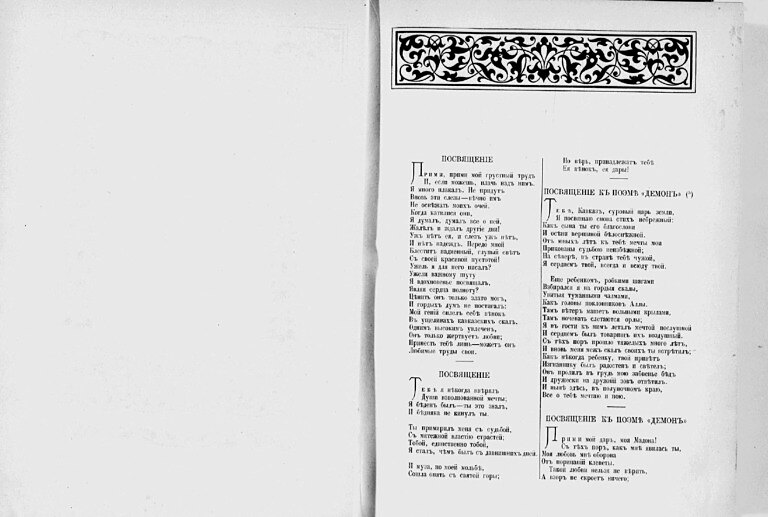 ПОСВЯЩЕНІЕ
Прими, прими мой грустный трудъ
И, если можешь, плачь надъ нимъ.
Я много плакалъ. Не придутъ
Вновь эти слезы—вѣчно имъ
Не освѣжать моихъ очей.
Когда катилися они,
Я думалъ, думалъ все о ней,
Жалѣлъ и ждалъ другіе дни!
Ужъ нѣтъ ея, и слезъ ужъ нѣтъ,
И нѣтъ надеждъ. Передо мной
Блеститъ надменный, глупый свѣтъ
Съ своей красивой пустотой!
Ужель я для него писалъ?
Ужели важному шуту
Я вдохновенье посвящалъ,
Являя сердца полноту?
Цѣнить онъ только злато могъ,
И гордыхъ думъ не постигалъ:
Мой геній сплелъ себѣ вѣнокъ
Въ ущелинахъ кавказскихъ скалъ.
Однимъ высокимъ увлеченъ,
Онъ только жертвуетъ любви;
Принесть тебѣ лишь—можетъ онъ
Любимые труды свои.
ПОСВЯЩЕНІЕ
Тебѣ я нѣкогда ввѣрялъ
Души взволнованной мечты;
Я бѣденъ былъ—ты это зналъ,
И бѣдняка не кинулъ ты.
Ты примирилъ меня съ судьбой,
Съ мятежной властію страстей;
Тобой, единственно тобой,
Я сталъ, чѣмъ былъ съ давнишнихъ дней.
И муза, по моей мольбѣ,
Сошла опять съ святой горы;
Но вѣрь, принадлежатъ тебѣ
Ея вѣнокъ, ея дары!
ПОСВЯЩЕНІЕ КЪ ПОЭМѢ «ДЕМОНЪ»
Тебѣ, Кавказъ, суровый царь земли,
Я посвящаю снова стихъ небрежный:
Какъ сына ты его благослови
И осѣни вершиной бѣлоснѣжной.
Отъ юныхъ лѣтъ къ тебѣ мечты мои
Прикованы судьбою неизбѣжной;
На сѣверѣ, въ странѣ тебѣ чужой,
Я сердцемъ твой, всегда и всюду твой.
Еще ребенкомъ, робкими шагами
Взбирался я на гордыя скалы,
Увитыя туманными чалмами,
Какъ головы поклонниковъ Аллы.
Тамъ вѣтеръ машетъ вольными крылами,
Тамъ ночевать слетаются орлы;
Я въ гости къ нимъ леталъ мечтой послушной
И сердцемъ былъ товарищъ ихъ воздушный.
Съ тѣхъ поръ прошло тяжелыхъ много лѣтъ,
И вновь меня межъ скалъ своихъ ты встрѣтилъ;
Какъ нѣкогда ребенку, твой привѣтъ
Изгнаннику былъ радостенъ и свѣтелъ;
Онъ пролилъ въ грудь мою забвенье бѣдъ
И дружески на дружній зовъ отвѣтилъ.
И нынѣ здѣсь, въ полуночномъ краю,
Все о тебѣ мечтаю и пою.
ПОСВЯЩЕНІЕ КЪ ПОЭМѢ «ДЕМОНЪ»
Прими мой даръ, моя Мадона!
Съ тѣхъ поръ, какъ мнѣ явилась ты,
Моя любовь мнѣ оборона
Отъ порицаній клеветы.
Такой любви нельзя не вѣрить,
А взоръ не скроетъ ничего;